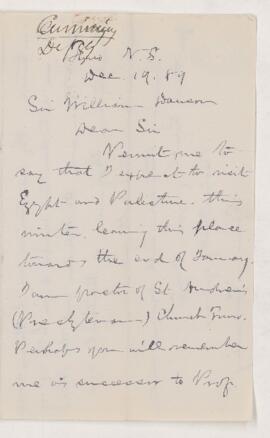 Cumming
Truro N.S.
Dec. 19. 89
Sir William Dawson
Dear Sir
Permit me to
say that I expect to visit
Egypt and Palestine this
winter, leaving this place
towards the end of January.
I am pastor of St. Andrew's
(Presbyterian) Church Truro.
Perhaps you will remember
me as successor to Prof.